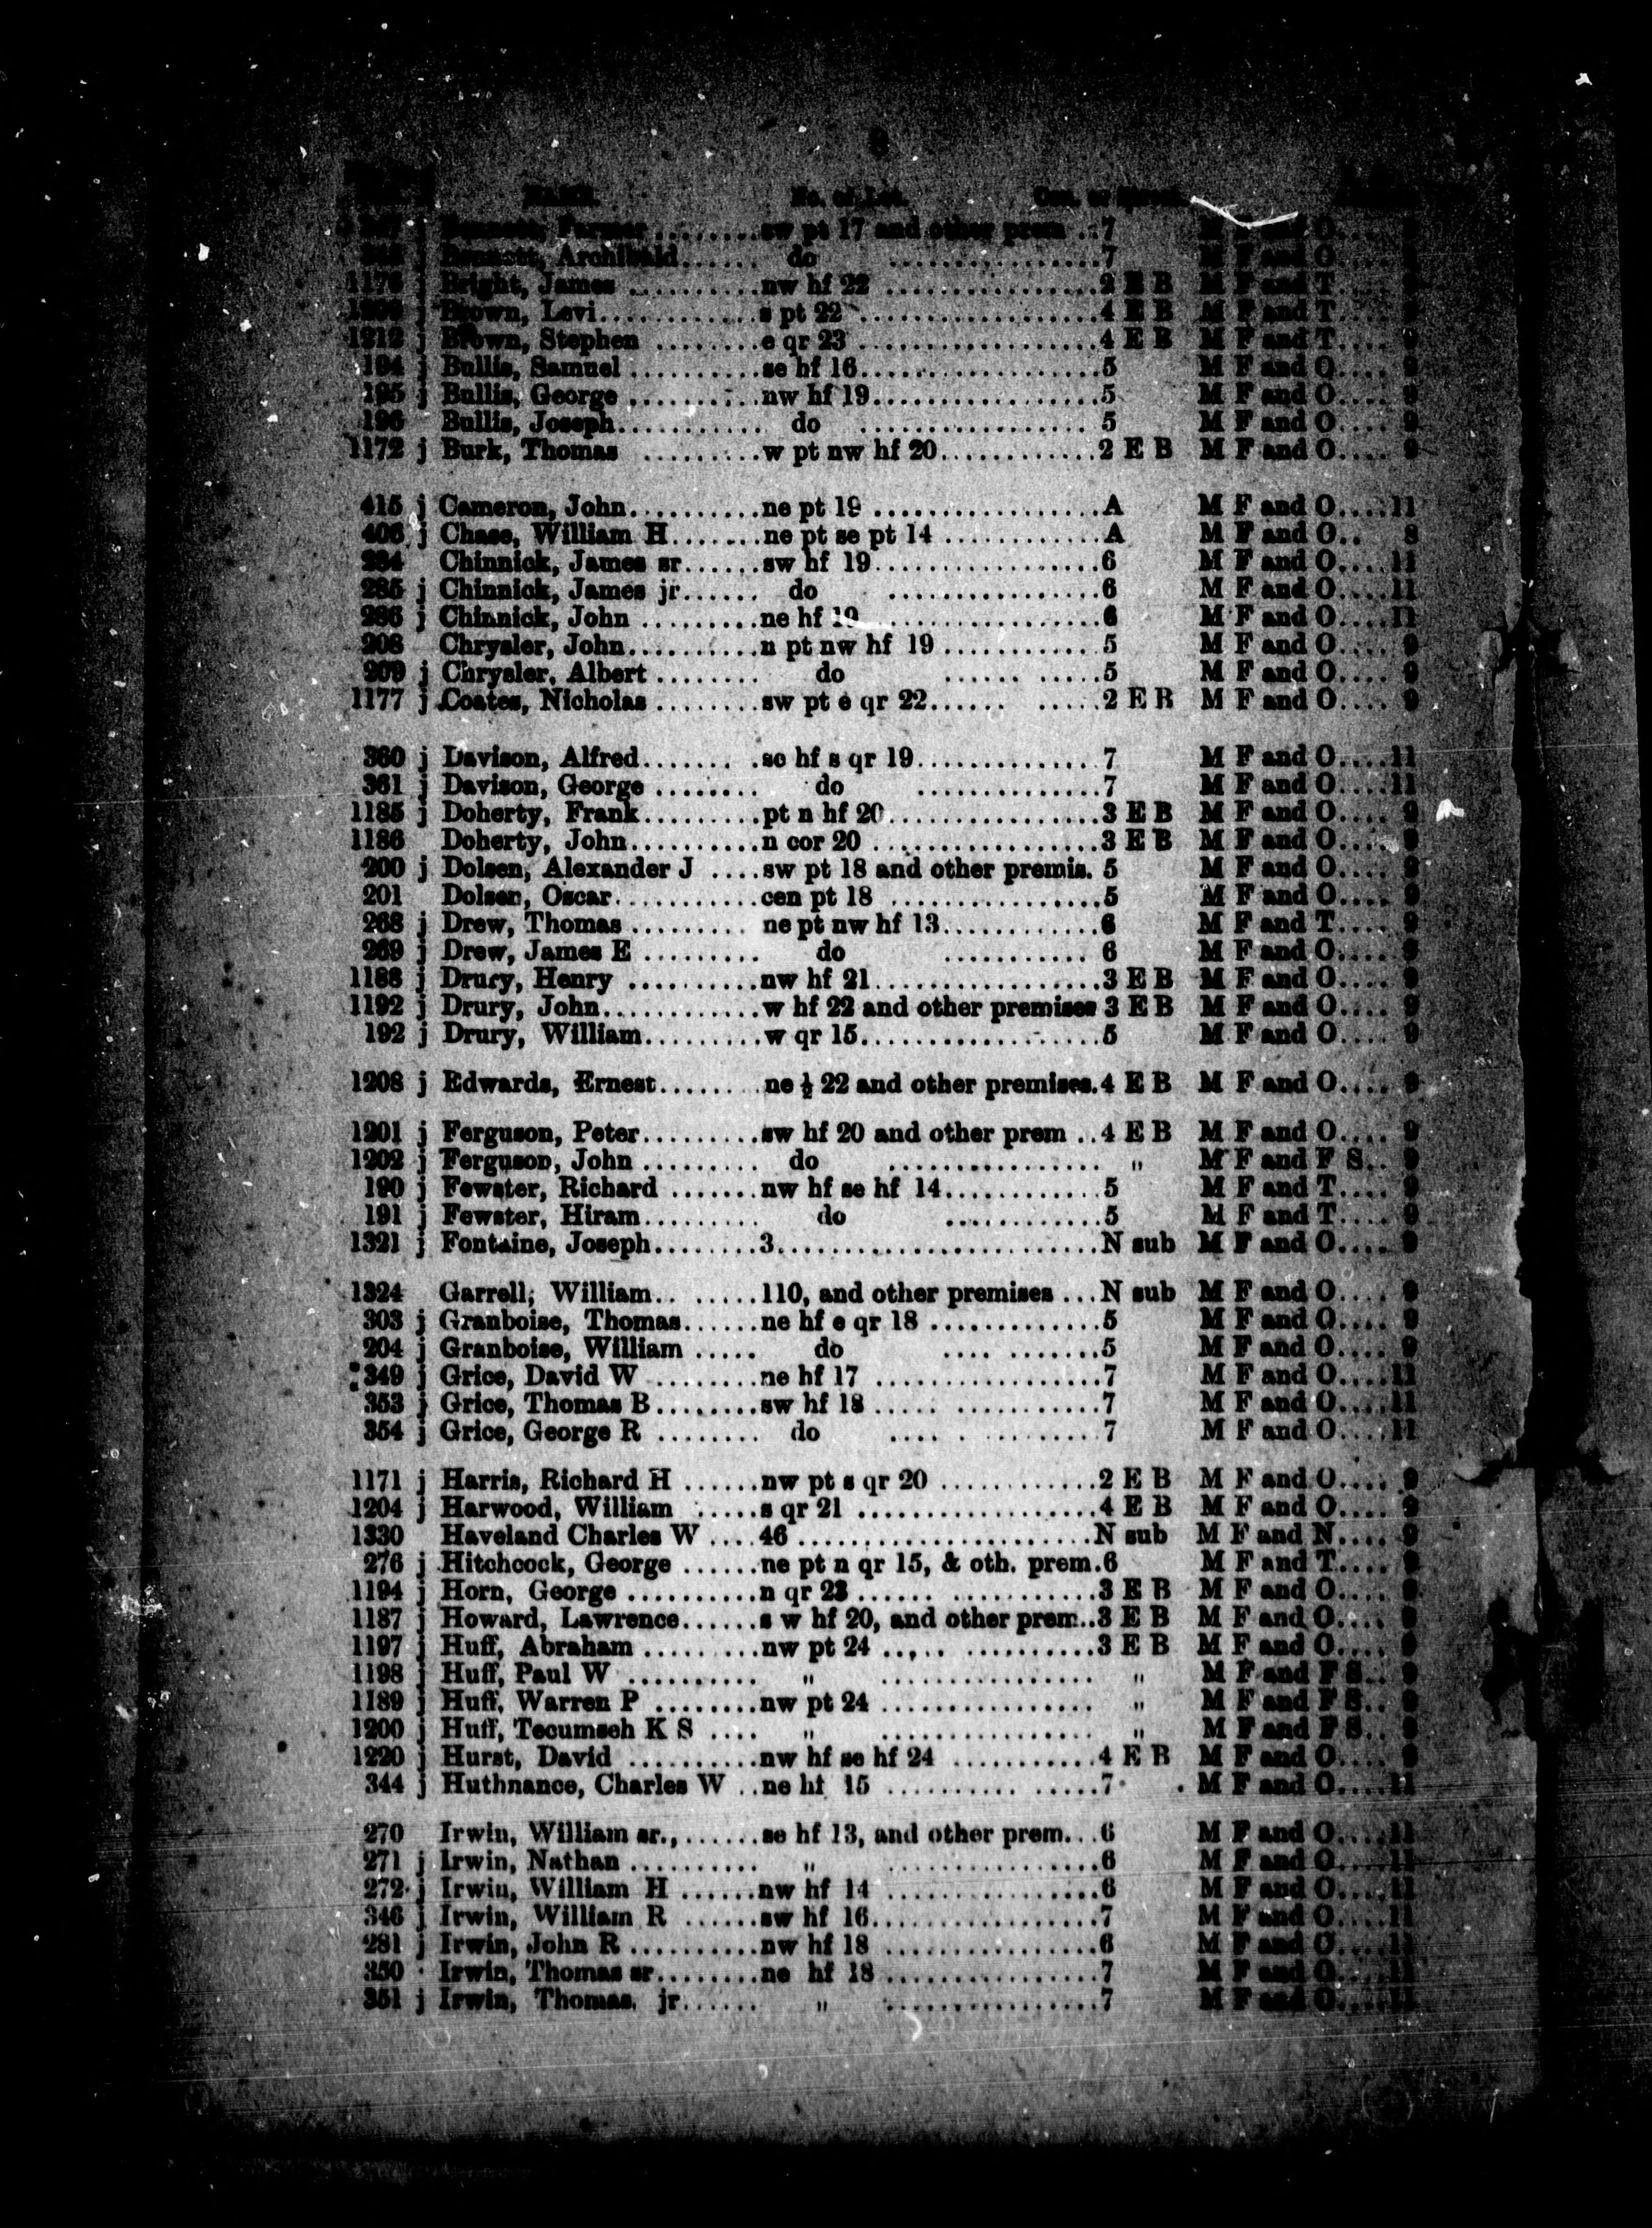 8
NAME. No. of Lot. Con. or Street.
j Bennett, Farmer ........sw pt 17 and other prem ..7 M F and O....
j Bennett, Archibald...... do ................7 M F and O....
1176 j Bright, James ..........nw hf 22 .................2 E B M F and T....
j Brown, Levi.............s pt 22 ..................4 E B M F and T....
1212 j Brown, Stephen ........e qr 23 ..................4 E B M F and T.... 9
194 j Bullis, Samuel ..........se hf 16..................5 M F and O.... 9
195 j Bullis, George ..........nw hf 19.................5 M F and O.... 9
196 Bullis, Joseph........... do ................. 5 M F and O.... 9
1172 j Burk, Thomas .........w pt nw hf 20............2 E B M F and O.... 9
415 j Cameron, John..........ne pt 19 .................A M F and O....11
406 j Chase, William H.......ne pt se pt 14 ............A M F and O.. 8
284 Chinnick, James sr......sw hf 19.................6 M F and O....11
285 j Chinnick, James jr...... do ................6 M F and O....11
286 j Chinnick, John .........ne hf 19 ................6 M F and O....11
208 Chrysler, John...........n pt nw hf 19 ............5 M F and O.... 9
209 j Chrysler, Albert ........ do ...... .....5 M F and O.... 9
1177 j Coates, Nicholas ........sw pt e qr 22...... .....2 E B M F and O.... 9
360 j Davison, Alfred....... .se hf s qr 19..............7 M F and O....11
361 j Davison, George ........ do ..............7 M F and O....11
1185 j Doherty, Frank.........pt n hf 20................3 E B M F and O.... 9
1186 Doherty, John..........n cor 20 .................3 E B M F and O.... 9
200 j Dolsen, Alexander J ....sw pt 18 and other premis. 5 M F and O.... 9
201 Dolsen, Oscar...........cen pt 18 ................5 M F and O.... 9
268 j Drew, Thomas ......... ne pt nw hf 13............6 M F and T.... 9
269 j Drew, James E ......... do ........... 6 M F and O.... 9
1188 j Drury, Henry ..........nw hf 21.................3 E B M F and O.... 9
1192 j Drury, John............w hf 22 and other premises 3 E B M F and O.... 9
192 j Drury, William.........w qr 15..................5 M F and O.... 9
1208 j Edwards, Ernest....... .ne ½ 22 and other premises.4 E B M F and O.... 9
1201 j Ferguson, Peter.........sw hf 20 and other prem ..4 E B M F and O.... 9
1202 j Ferguson, John ......... do ................. " M F and F S.. 9
190 j Fewster, Richard .......nw hf se hf 14............5 M F and T.... 9
191 j Fewster, Hiram......... do ............5 M F and T.... 9
1321 j Fontaine, Joseph........3.........................N sub M F and O.... 9
1324 Garrell, William.. .....110, and other premises ...N sub M F and O.... 9
303 j Granboise, Thomas......ne hf e qr 18 .............5 M F and O.... 9
204 j Granboise, William ..... do .... .......5 M F and O.... 9
349 j Grice, David W ........ne hf 17 .................7 M F and O....11
353 j Grice, Thomas B........sw hf 18 ..... ...........7 M F and O....11
354 j Grice, George R ........ do .... . ........7 M F and O....11
1171 j Harris, Richard H ......nw pt s qr 20 ............2 E B M F and O.... 9
1204 j Harwood, William .....s qr 21 ..................4 E B M F and O.... 9
1330 Haveland Charles W ....46 .......................N sub M F and N.... 9
276 j Hitchcock, George ......ne pt n qr 15, & oth. prem.6 M F and T.... 9
1194 j Horn, George ..........n qr 23 ...... ...........3 E B M F and O.... 9
1187 j Howard, Lawrence......s w hf 20, and other prem..3 E B M F and O.... 9
1197 j Huff, Abraham .........nw pt 24 ..... ..........3 E B M F and O.... 9
1198 j Huff, Paul W .......... " ................. " M F and F S.. 9
1189 j Huff, Warren P ........nw pt 24 ................. " M F and F S.. 9
1200 j Huff, Tecumseh K S .... " ................. " M F and F S.. 9
1220 j Hurst, David ..........nw hf se hf 24 ...........4 E B M F and O.... 9
344 j Huthnance, Charles W ..ne hf 15 .......... .....7 M F and O....11
270 Irwin, William sr.,......se hf 13, and other prem...6 M F and O....11
271 j Irwin, Nathan .......... " .................6 M F and O....11
272 j Irwin, William H ......nw hf 14 .................6 M F and O....11
346 j Irwin, William R ......sw hf 16..................7 M F and O....11
281 j Irwin, John R ..........nw hf 18 .................6 M F and O....11
350 Irwin, Thomas sr........ne hf 18 .................7 M F and O....11
351 j Irwin, Thomas, jr...... " .................7 M F and O....11